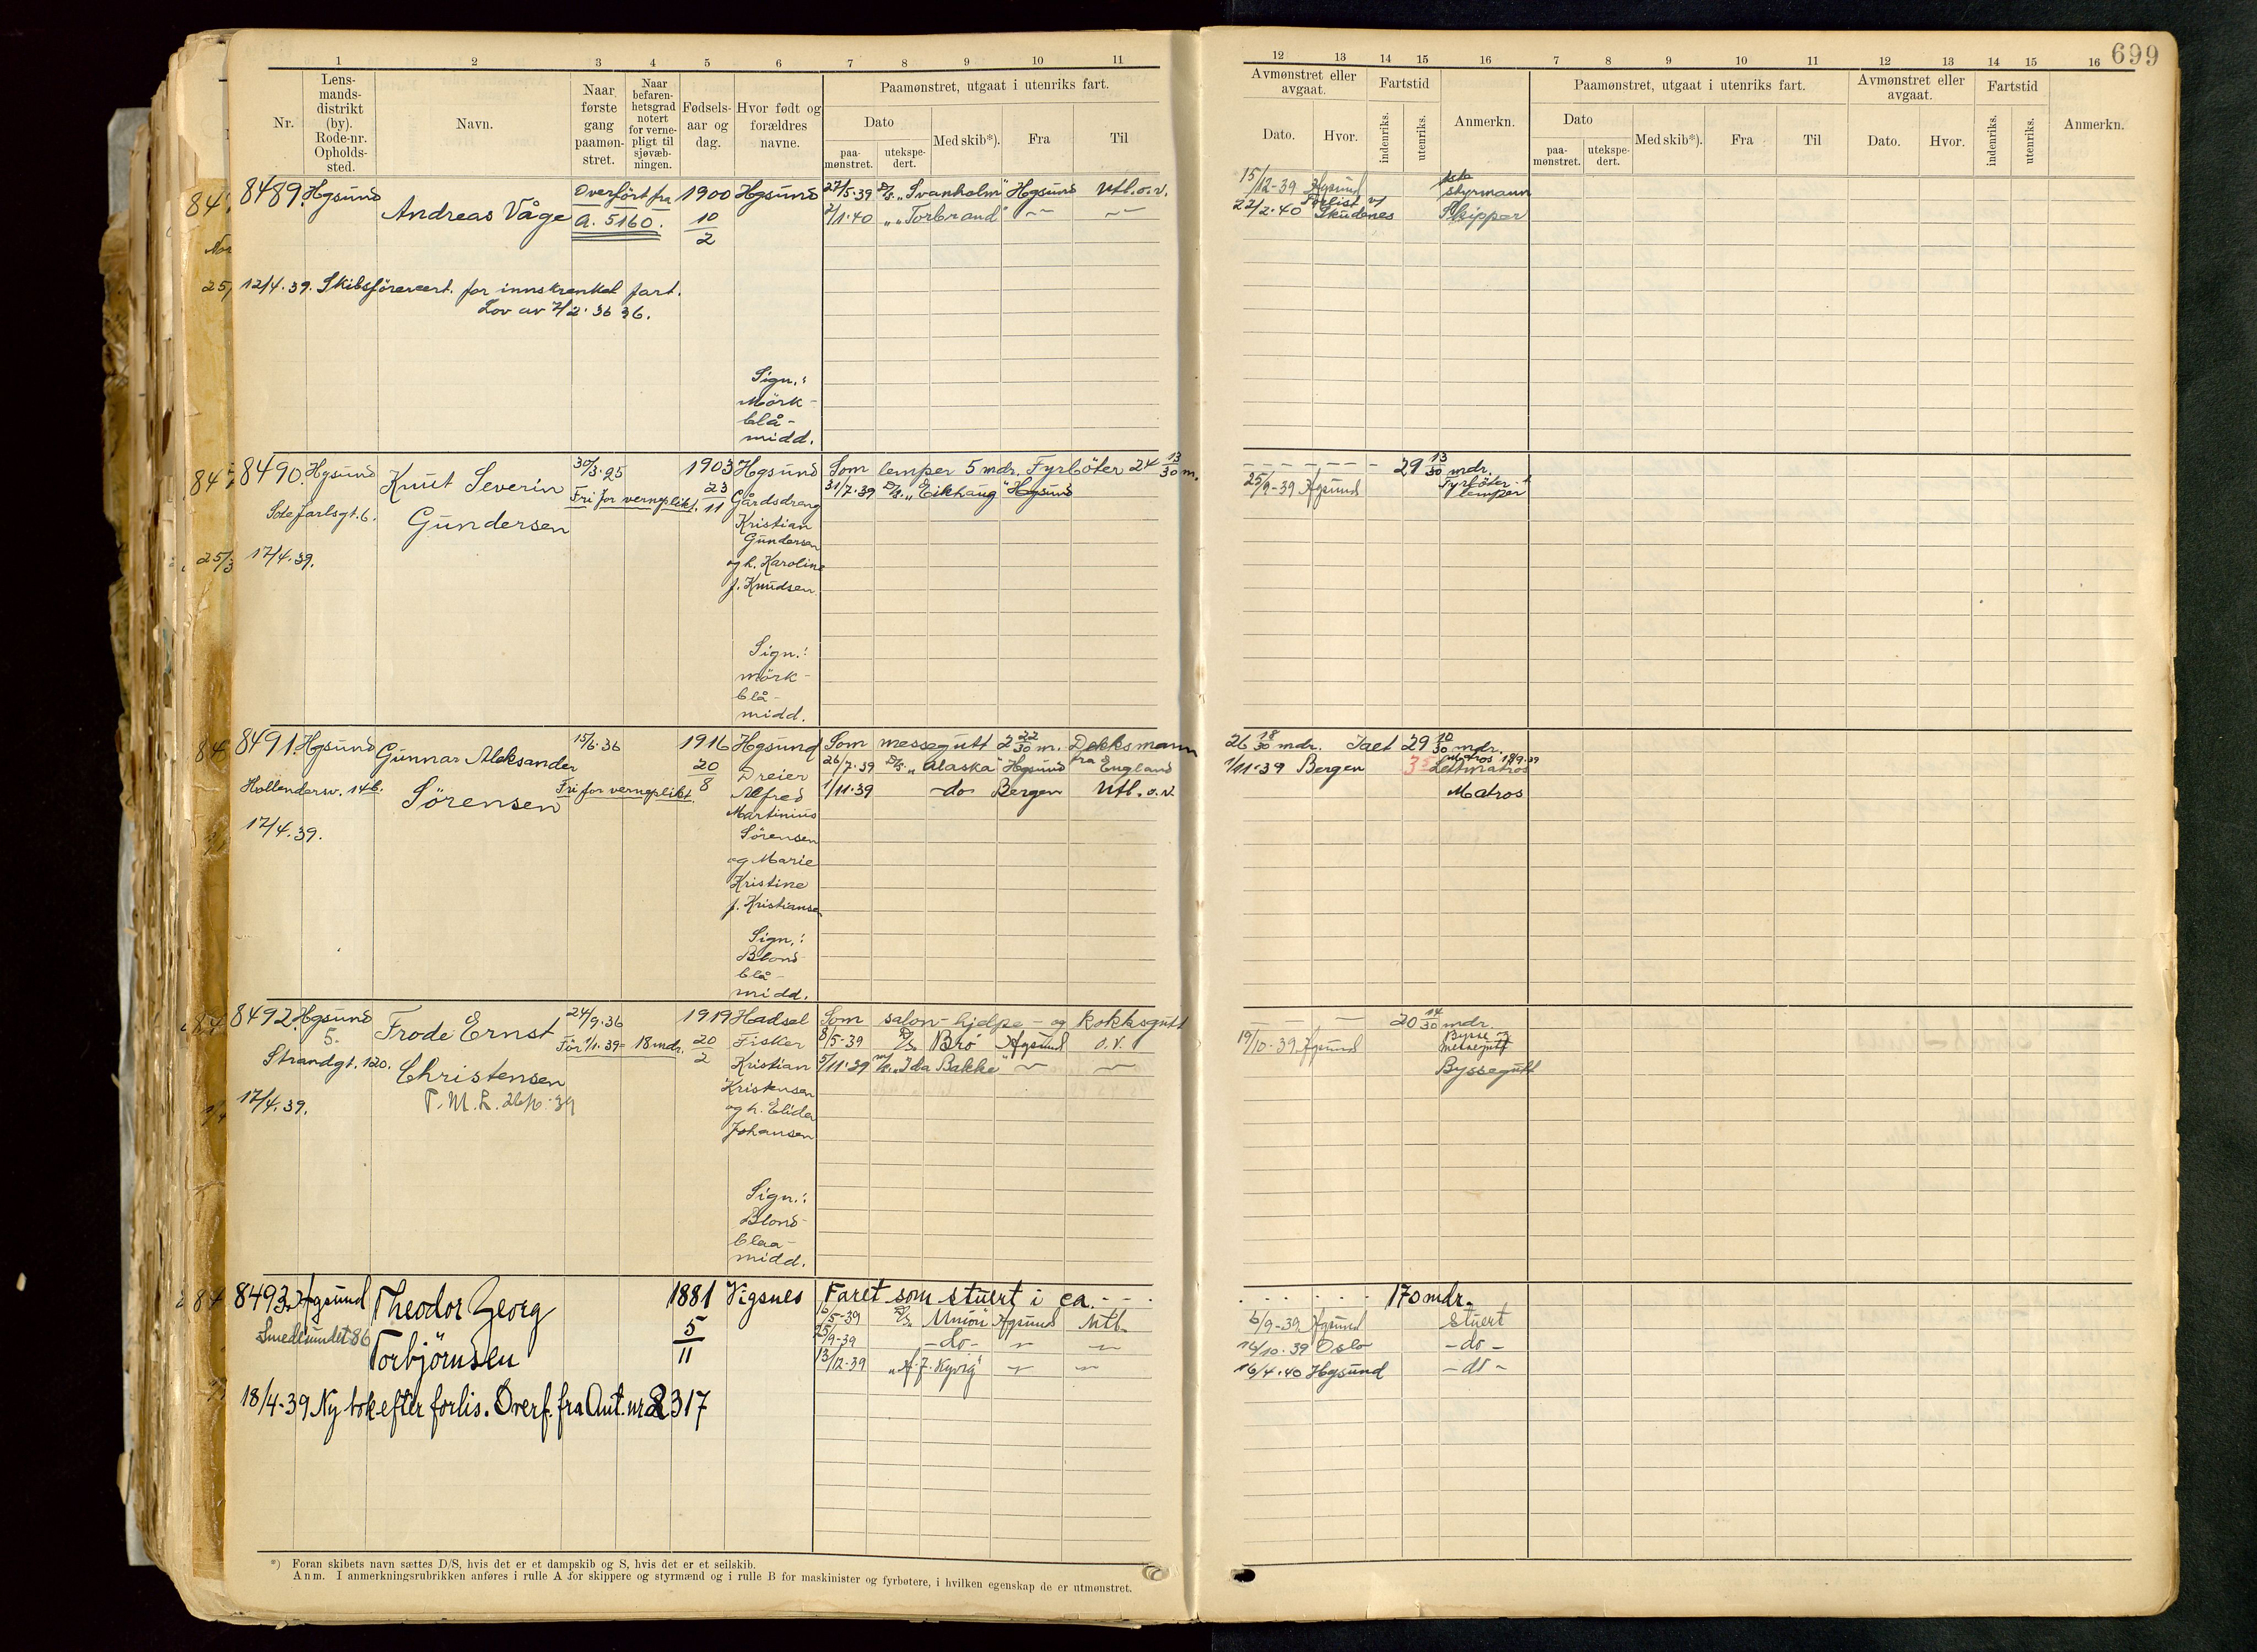 699
1 2 3 4 5 6 7 8 9 10 11
12 13 14 15 16 7 8 9 10 11 12 13 14 15 16
Nr.
Lens-
mands-
distrikt
(by).
Rode-nr.
Opholds-
sted.
Navn.
Naar
første
gang
paamøn-
stret.
Naar
befaren-
hetsgrad
notert
for verne-
pligt til
sjøvæb-
ningen.
Fødsels-
aar og
dag.
Hvor født og
forældres
navne.
Paamønstret, utgaat i utenriks fart.
Dato
paa-
mønstret.
utekspe-
dert.
Med skib*).
Fra
Til
Avmønstret eller
avgaat.
Dato.
Hvor.
Fartstid
indenriks.
utenriks.
Anmerkn.
Paamønstret, utgaat i utenriks fart.
Dato
paa-
mønstret.
utekspe-
dert.
Med skib*).
Fra
Til
Avmønstret eller
avgaat.
Dato.
Hvor.
Fartstid
indenriks.
utenriks.
Anmerkn.
8489. Hgsund
Andreas Våge
Overført fra
A. 5160.
1900
10
2
Hgsund
27/5-39 D/S. „Svanholm" Hgsund Utl. o.v.
2/1-40 „ „Torbrand" — —
15/12-39 Hgsund styrmann
Forlist v/
22/2-40 Skudenes Skipper
12/4.39. Skibsförercert. for innskrenket fart.
Lov av 7/2. 36 36.
Sign.:
Mörk-
blå-
midd.
8490. Hgsund
Sotejarlsgt. 6.
17/4.39.
Knut Severin
Gundersen
30/3.25
Fri for verneplikt.
1903
23
11
Hgsund
Gårdsdreng
Kristian
Gundersen
og h. Karoline
f. Knudsen
Sign.:
mörk-
blå-
midd.
Som lemper 5 mdr. Fyrböter 24 13/30 m.
31/7-39 D/S. „Eikhaug" Hgsund
- - - - - - 29 13/30 mdr.
25/9-39 Hgsund Fyrböter
lemper
8491. Hgsund
Hollenderv. 14b.
17/4.39.
Gunnar Aleksander
Sörensen
15/6-36
Fri for verneplikt.
1916
20
8
Hgsund
Dreier
Alfred
Martinius
Sörensen
og Marie
Kristine
f. Kristiansen
Sign.:
Blond
blå-
midd.
Som messegutt 2 22/30 m. Dekksmann
26/7-39 D/S. „Alaska" Hgsund fra England
1/11-39 -do- Bergen Utl. o.v.
26 18/30 mdr. Ialt 29 10/30 mdr.
1/11-39 Bergen Lettmatros
Matros
8492. Hgsund
5.
Strandgt. 120.
17/4.39.
Frode Ernst
Christensen
24/9-36
För 1/1.39= 18 mdr.
1919
20
2
Hadsel
Fisker
Kristian
Kristensen
og h. Elida
Johansen
Sign.:
Blond-
blaa-
midd.
Som salon- hjelpe- og Kokksgutt
8/5-39 D/S Bro Hgsund O.V.
5/11-39 M/S. „Ida Bakke" — —
— — 20 14/30 mdr.
19/10-39 Hgsund Bysse og
messegutt
Byssegutt
8493. Hgsund
Smedesundet 86
Theodor Georg
Torbjörnsen
1881
5
11
Vigsnes
Faret som stuert i ca. - - -
6/5-39 D/S. Union Hgsund Utl.
25/9-39 -do- — —
13/12-39 „A. J. Kyvig" — —
. . . . . . 170 mdr.
6/9-39 Hgsund Stuert
16/10-39 Oslo -do-
16/4-40 Hgsund -do-
18/4-39 Ny bok efter forlis. Overf. fra Ant. nr 2317
*) Foran skibets navn sættes D/S, hvis det er et dampskib og S, hvis det er et seilskib.
Anm. I anmerkningsrubrikken anføres i rulle A for skippere og styrmænd og i rulle B for maskinister og fyrbøtere, i hvilken egenskap de er utmønstret.